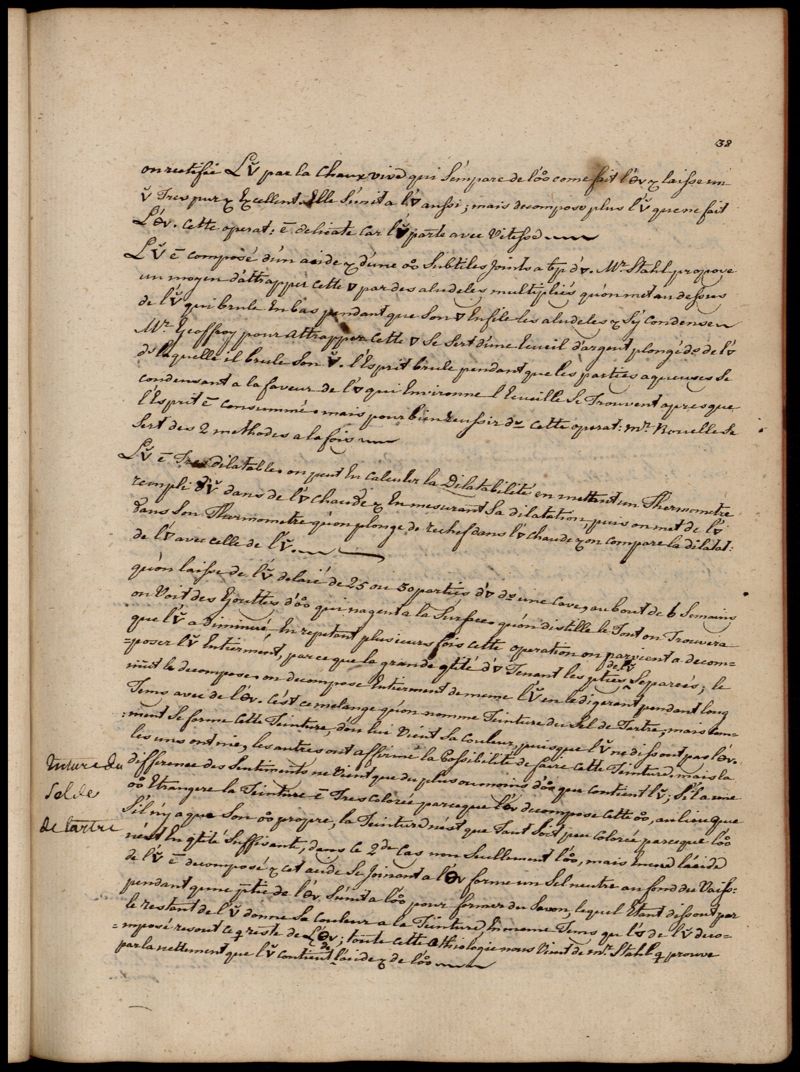 38
on rectifie L'V̌ par la Chaux vive qui S'empare de l'oo͏̊ come fait l'Θv & laisse un
V̌ Tres pur & Excellent. Elle S'unit a l'▽ aussi; mais decompose plus l'V̌ que ne fait
L'Θv. Cette operat: ē delicate car l'V̌ part avec Vitesse
L'V̌ ē composé d'un acide & d'une oo͏̊ Subtiles Joints a bp d'▽. Mr. Stahl propose
un moyen d'attrapper cette ▽ par des aludeles multipliés qu'on met au dessus
de l'V̌ qui brule En bas pendant que Son ▽ Enfile les aludeles & S'y Condense
Mr. Geoffroy pour attrapper cette ▽ Se Sert d'une Ecueil d'argent plongé ds de l'▽
ds laquelle il brule Son V̌. l'Esprit brule pendant que les parties aqueuses Se
condensant a la faveur de l'▽ qui Environne l'Ecueille Se Trouvent apres que
l'Esprit ē consummé. mais pour bien reussir ds cette operat: mr. Rouelle Se
Sert des 2 methodes a la fois
L'V̌ ē Tres dilatable. on peut En calculer la Dilatabilité en mettant un Thermometre
rempli d'V̌ dans de l'▽ chaude & En mesurant Sa dilatation, puis on met de l'▽
dans Son Thermometre qu'on plonge de rechef dans l'▽ chaude & on compare la dilatat:
de l'▽ avec celle de l'V̌.
qu'on laisse de l'V̌ delaié de 25 ou 30 parties d'▽ ds une cave, au bout de 6 Semains
on Voit des Gouttes d'oo͏̊ qui nagent a la Surface. qu'on distille le Tout on Trouvera
que l'V̌ a Diminué, En repetant plusieurs fois cette operation on parvient a decom=
=poser l'V̌ Entierment, parceque la grande qtité d'▽ Tenant les pties de l'V̌ Separeés; le
mût le decompose. on decompose Entierment de meme l'V̌ en le digerent pendant long
Tems avec de l'Θv. c'est ce melange qu'on nomme Teinture du Sel de Tartre, mais com=
=ment Se forme cette Teinture, d'ou lui Vient Sa couleur, puisque l'V̌ ne dissout pas l'Θv.
les uns ont nie, les autres ont affirmé la Possibilité de faire cette Teinture, mais la
difference des Sentiments ne Vient que du plus ou moins d'oo͏̊ que contient l'V̌; S'il a une
oo͏̊ Etrangere la Teinture ē Tres Colorée parceque l'Θv decompose cette oo͏̊, au lieu que
S'il n'y a que Son oo͏̊ propre, la Teinture n'est que Tant Soit peu colorée parceque l'oo͏̊
n'est En qtité Suffisante, dans ce 2d. Cas non Seullement l'oo͏̊, mais encor l'acide
de l'V̌ ē decomposé & cet acide Se Joinant a l'Θv forme un Sel neutre au fond du Vaiss=
pendant qu'une ptie de l'Θv S'unit a l'oo͏̊ pour former du Savon, lequel Etant dissout par
le restant de l'V̌ donne Sa Couleur a la Teinture, En meme Tems que l'▽ de l'V̌ deco=
=mposé resout ce q̄ reste de L'Θv; toute cette Æthiologie nous Vient de mr. Stahl q̄ prouve
par la nettement que l'V̌ contient de l'acide & de l'oo͏̊
Teinture du
Sel de
de tartre